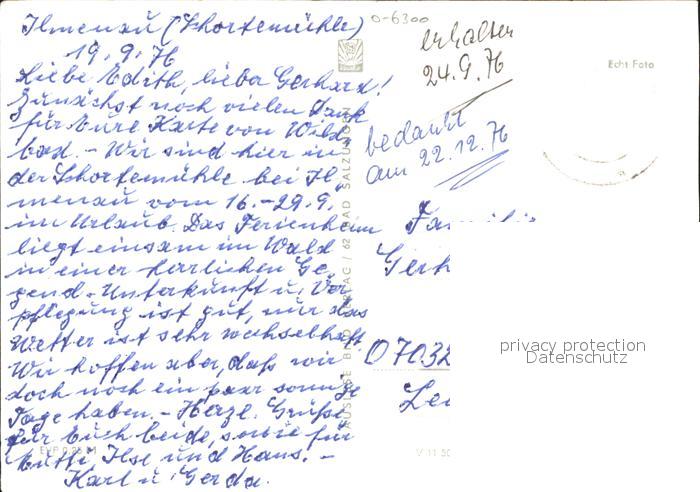 Ilmenau (Schortemühle)
19.9.76
Liebe Edith, lieber Gerhard!
Zunächst noch vielen Dank
für Eure Karte von Wild
bad. - Wir sind hier in
der Schortemühle bei Il
menau vom 16.-29.9.
im Urlaub. Das Ferienheim
liegt einsam im Wald
in einer herrlichen Ge
gend. Unterkunft u. Ver
pflegung ist gut, nur das
Wetter ist sehr wechselhaft.
Wir hoffen aber, daß wir
doch noch ein paar sonnige
Tage haben. - Herzl. Grüße
für Euch beide, sowie für
Mutti, Ilse und Hans. -
Karl u. Gerda.
0-6300
erhalten
24.9.76
bedankt
am 22.12.76
Echt Foto
BAD SALZUNGEN
Familie
Gerh
7032
Lei
privacy protection
Datenschutz
V 11 50